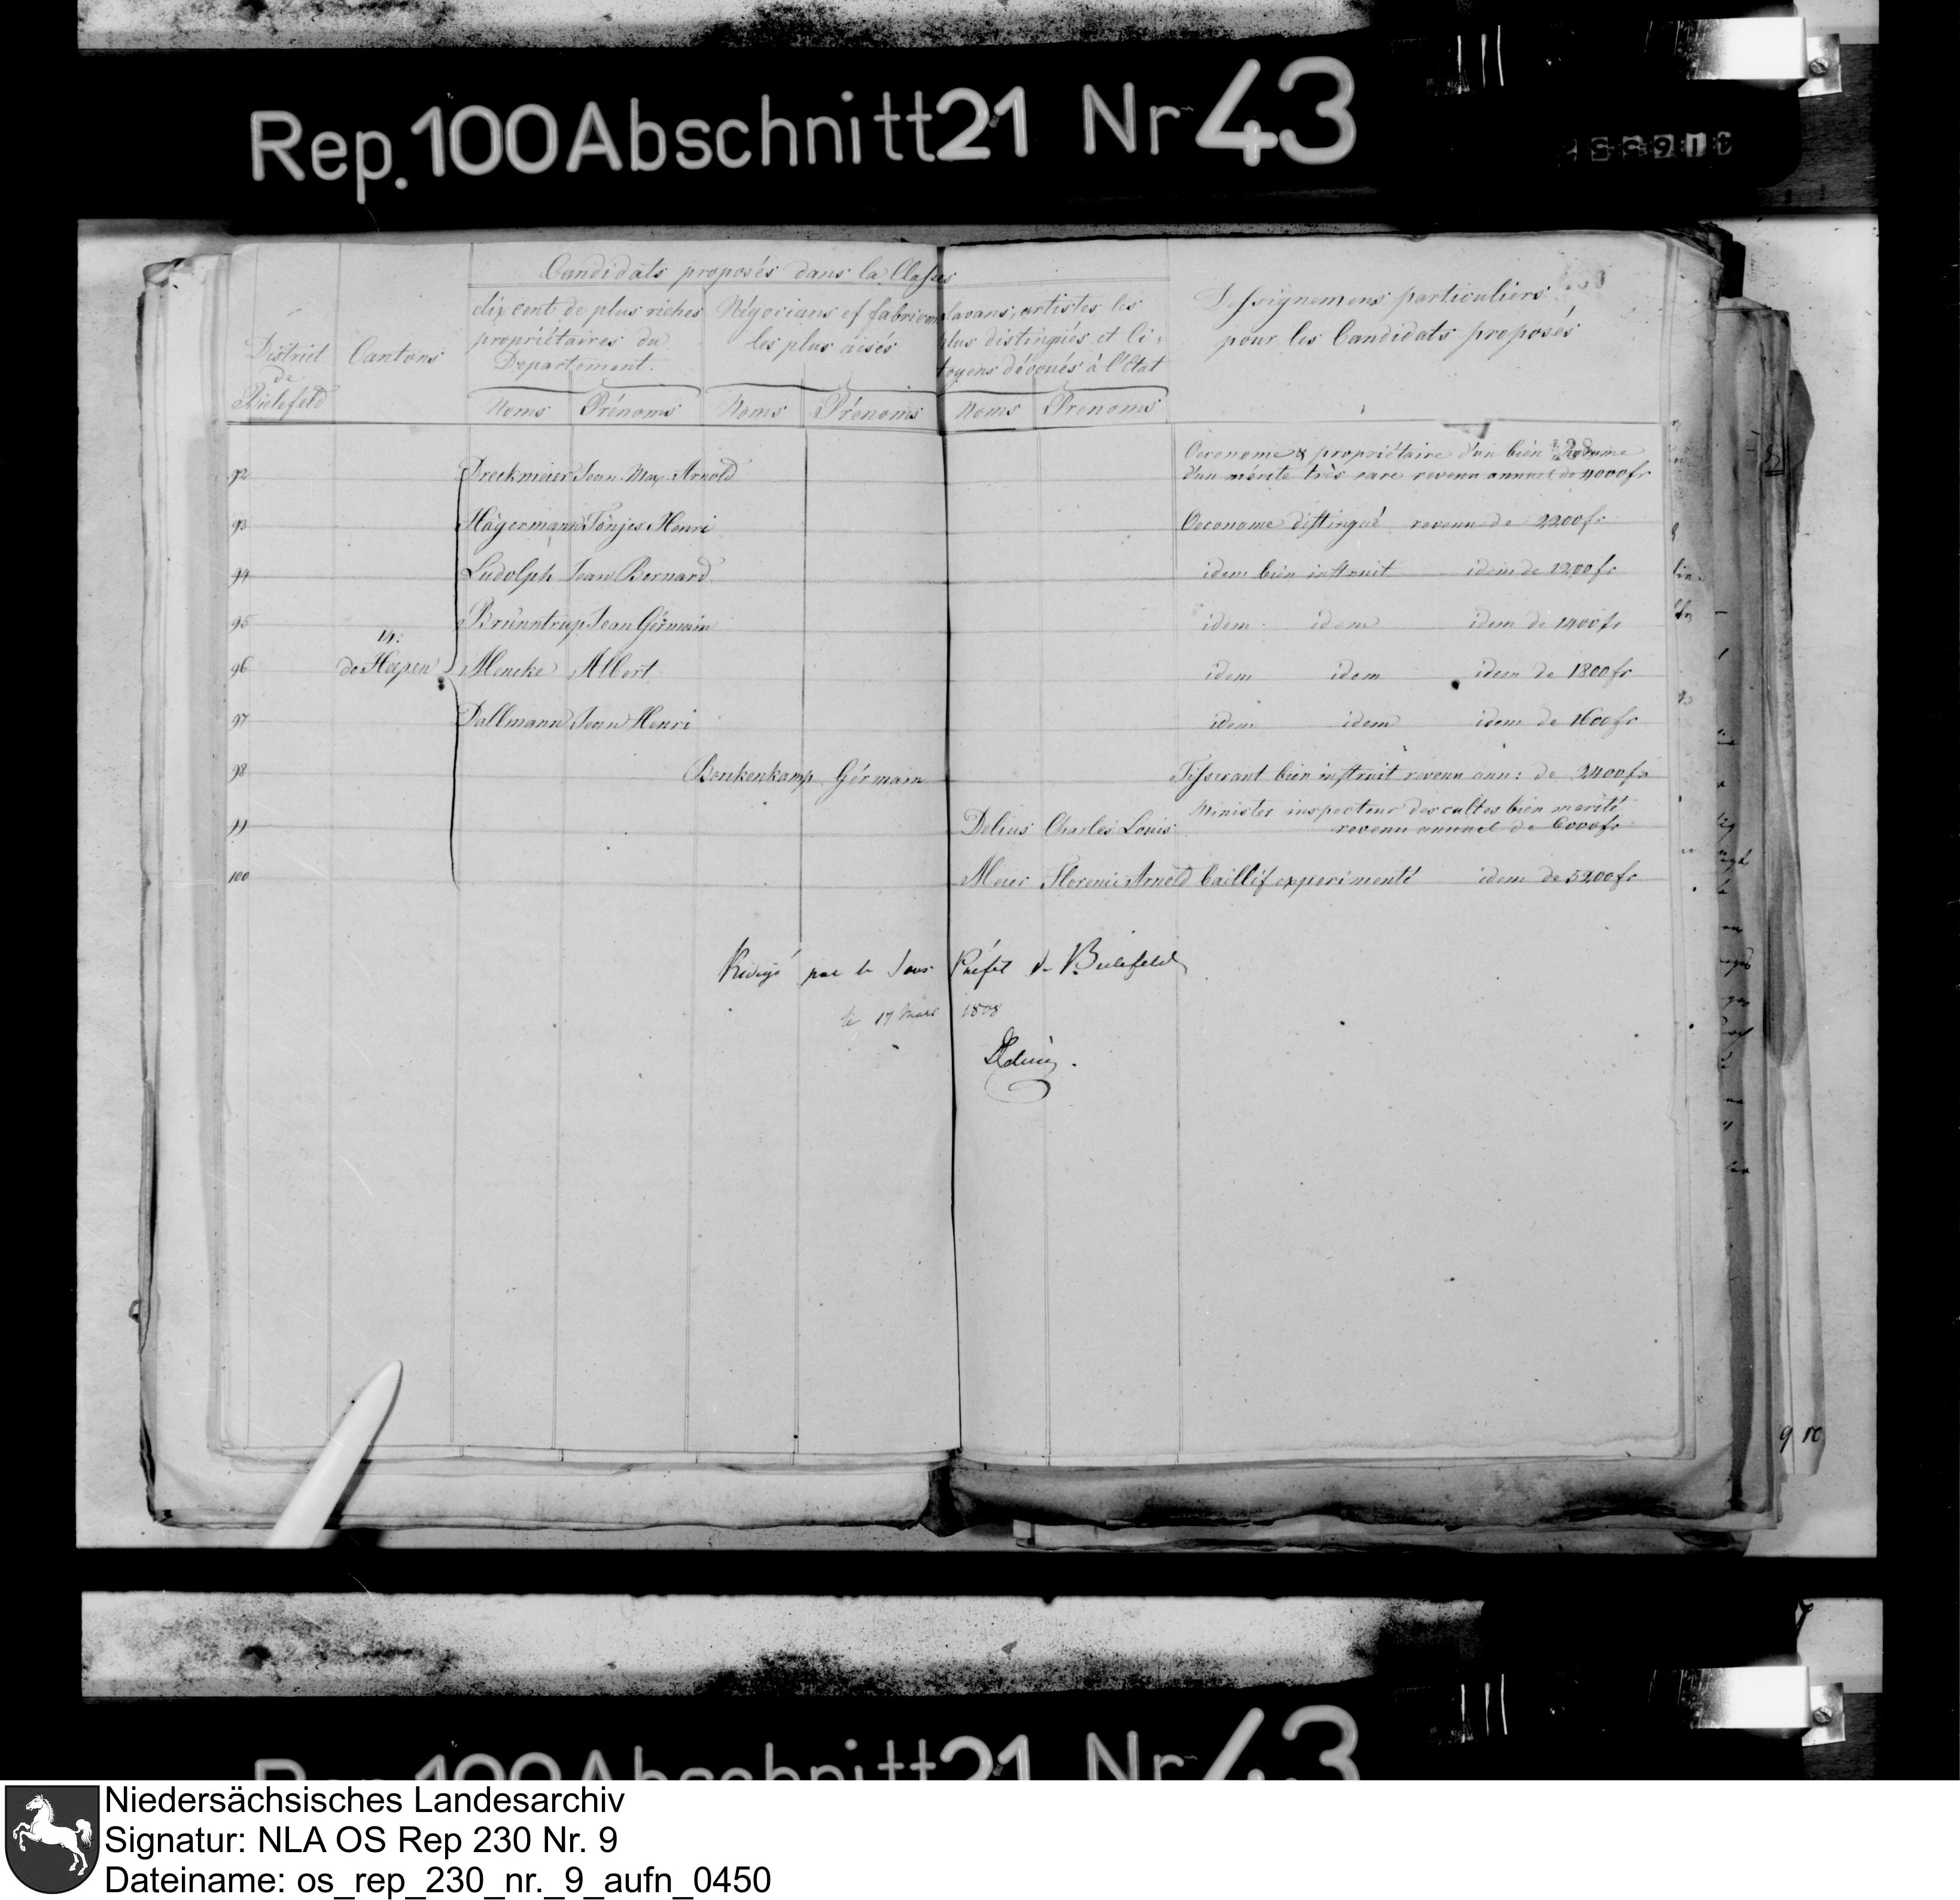 Rep. 100 Abschnitt 21 Nr 43
Candidats proposés dans la Classe
District
de
Bielefeld
Cantons
dix cent de plus riches
propriétaires du
Departement.
Négocians et fabricans
les plus aisés
savans, artistes les
plus distingués et Ci-
toyens dévoués à l'Etat
pour les Candidats proposés
Noms Prénoms Noms Prénoms Noms Prenoms
128
92 Dreckmeier Jean Max Arnold Oeconome & propriétaire d'un bien
d'un mérite très rare revenu annuel de 4000 fr
93 Hägermann Tönjes Henri Oeconome distingué revenu de 2200 fr
94 Ludolph Jean Bernard idem bien instruit idem de 1200 fr
95 Brünntrup Jean Gérmain idem idem idem de 1400 fr
14:
96 de Heepen Mencke Albert idem idem idem de 1800 fr
97 Dallmann Jean Henri idem idem idem de 1600 fr
98 Gérmain Tisserant bien instruit revenu ann: de 2400 fr
Ministre inspecteur des cultes bien merité
99 Delius Charles Louis revenu annuel de 6000 fr
100 Meier Arnold baillif experimenté idem de 3200 fr
Redigé par le Sous Préfet de Bielefeld
le 17 Mars 1808
Delius.
9 10
Rep. 100 Abschnitt 21 Nr 43
Niedersächsisches Landesarchiv
Signatur: NLA OS Rep 230 Nr. 9
Dateiname: os_rep_230_nr._9_aufn_0450